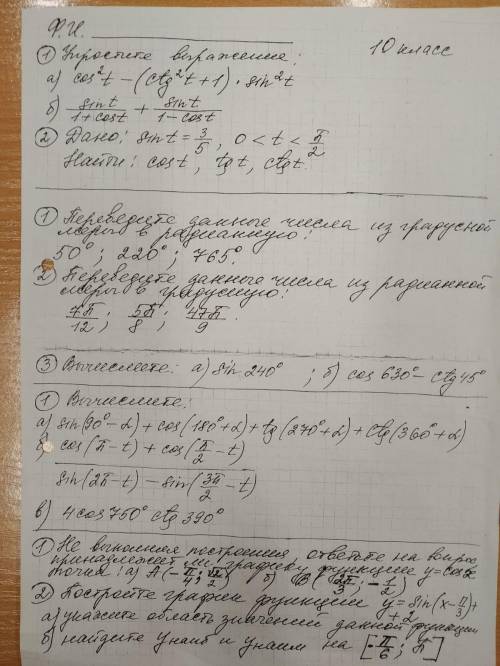 Ф.И.
10 класс
① Упростите выражение:
а) cos²t − (ctg²t + 1) · sin²t
б) sin t / (1 + cos t) + sin t / (1 − cos t)
② Дано: sin t = 3/5, 0 < t < π/2
Найти: cos t, tg t, ctg t.
① Переведите данные числа из градусной
меры в радианную:
50°; 220°; 765°.
② Переведите данные числа из радианной
меры в градусную:
7π/12; 5π/8; 47π/9.
③ Вычислите: а) sin 240° ; б) cos 630° − ctg 45°
① Вычислите:
а) sin(90° − α) + cos(180° + α) + tg(270° + α) + ctg(360° + α)
б) (cos(π − t) + cos(π/2 − t)) / (sin(2π − t) − sin(3π/2 − t))
в) 4 cos 750° ctg 390°
① Не выполняя построения, ответьте на вопрос
принадлежит ли графику функции y = cos x
точка: а) A(−π/4; √2/2) б) B(2π/3; −1/2)
② Постройте график функции y = sin(x − π/3) + 2
а) укажите область значений данной функции
б) найдите y наиб и y наим на [−π/6; π]